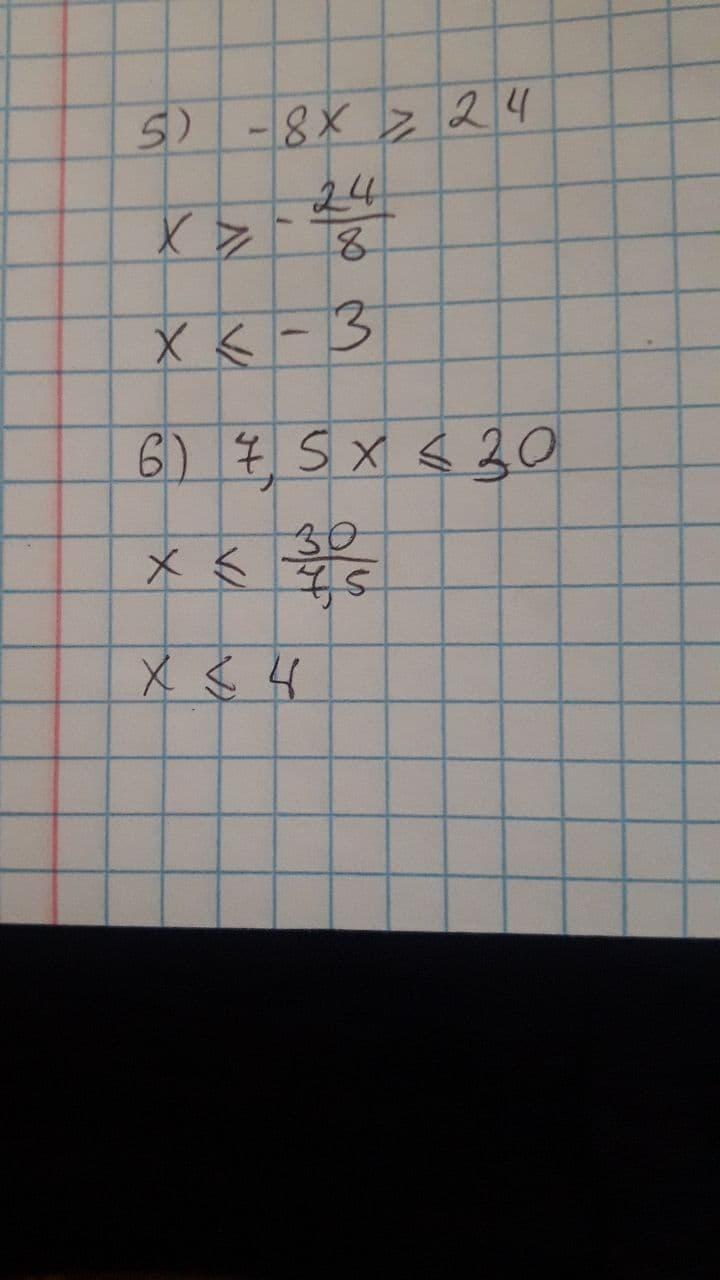 5) -8x ⩾ 24
x ⩾ - 24/8
x ⩽ - 3
6) 7,5x ⩽ 30
x ⩽ 30/7,5
x ⩽ 4